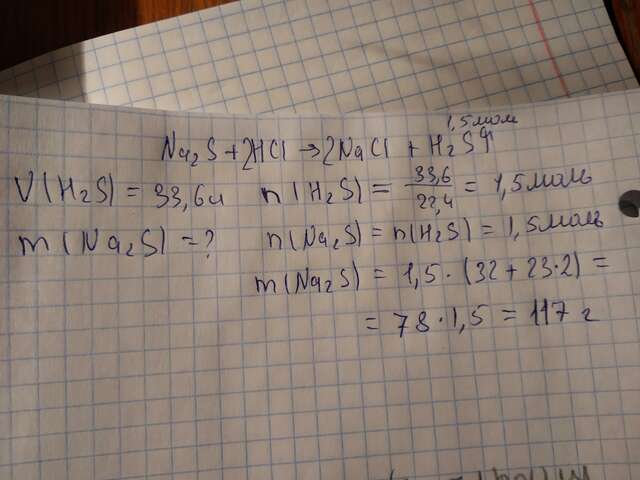 1,5 моль
Na₂S + 2HCl → 2NaCl + H₂S↑
V(H₂S) = 33,6 л n(H₂S) = 33,6/22,4 = 1,5 моль
m(Na₂S) = ? n(Na₂S) = n(H₂S) = 1,5 моль
m(Na₂S) = 1,5 · (32 + 23·2) =
= 78 · 1,5 = 117 г